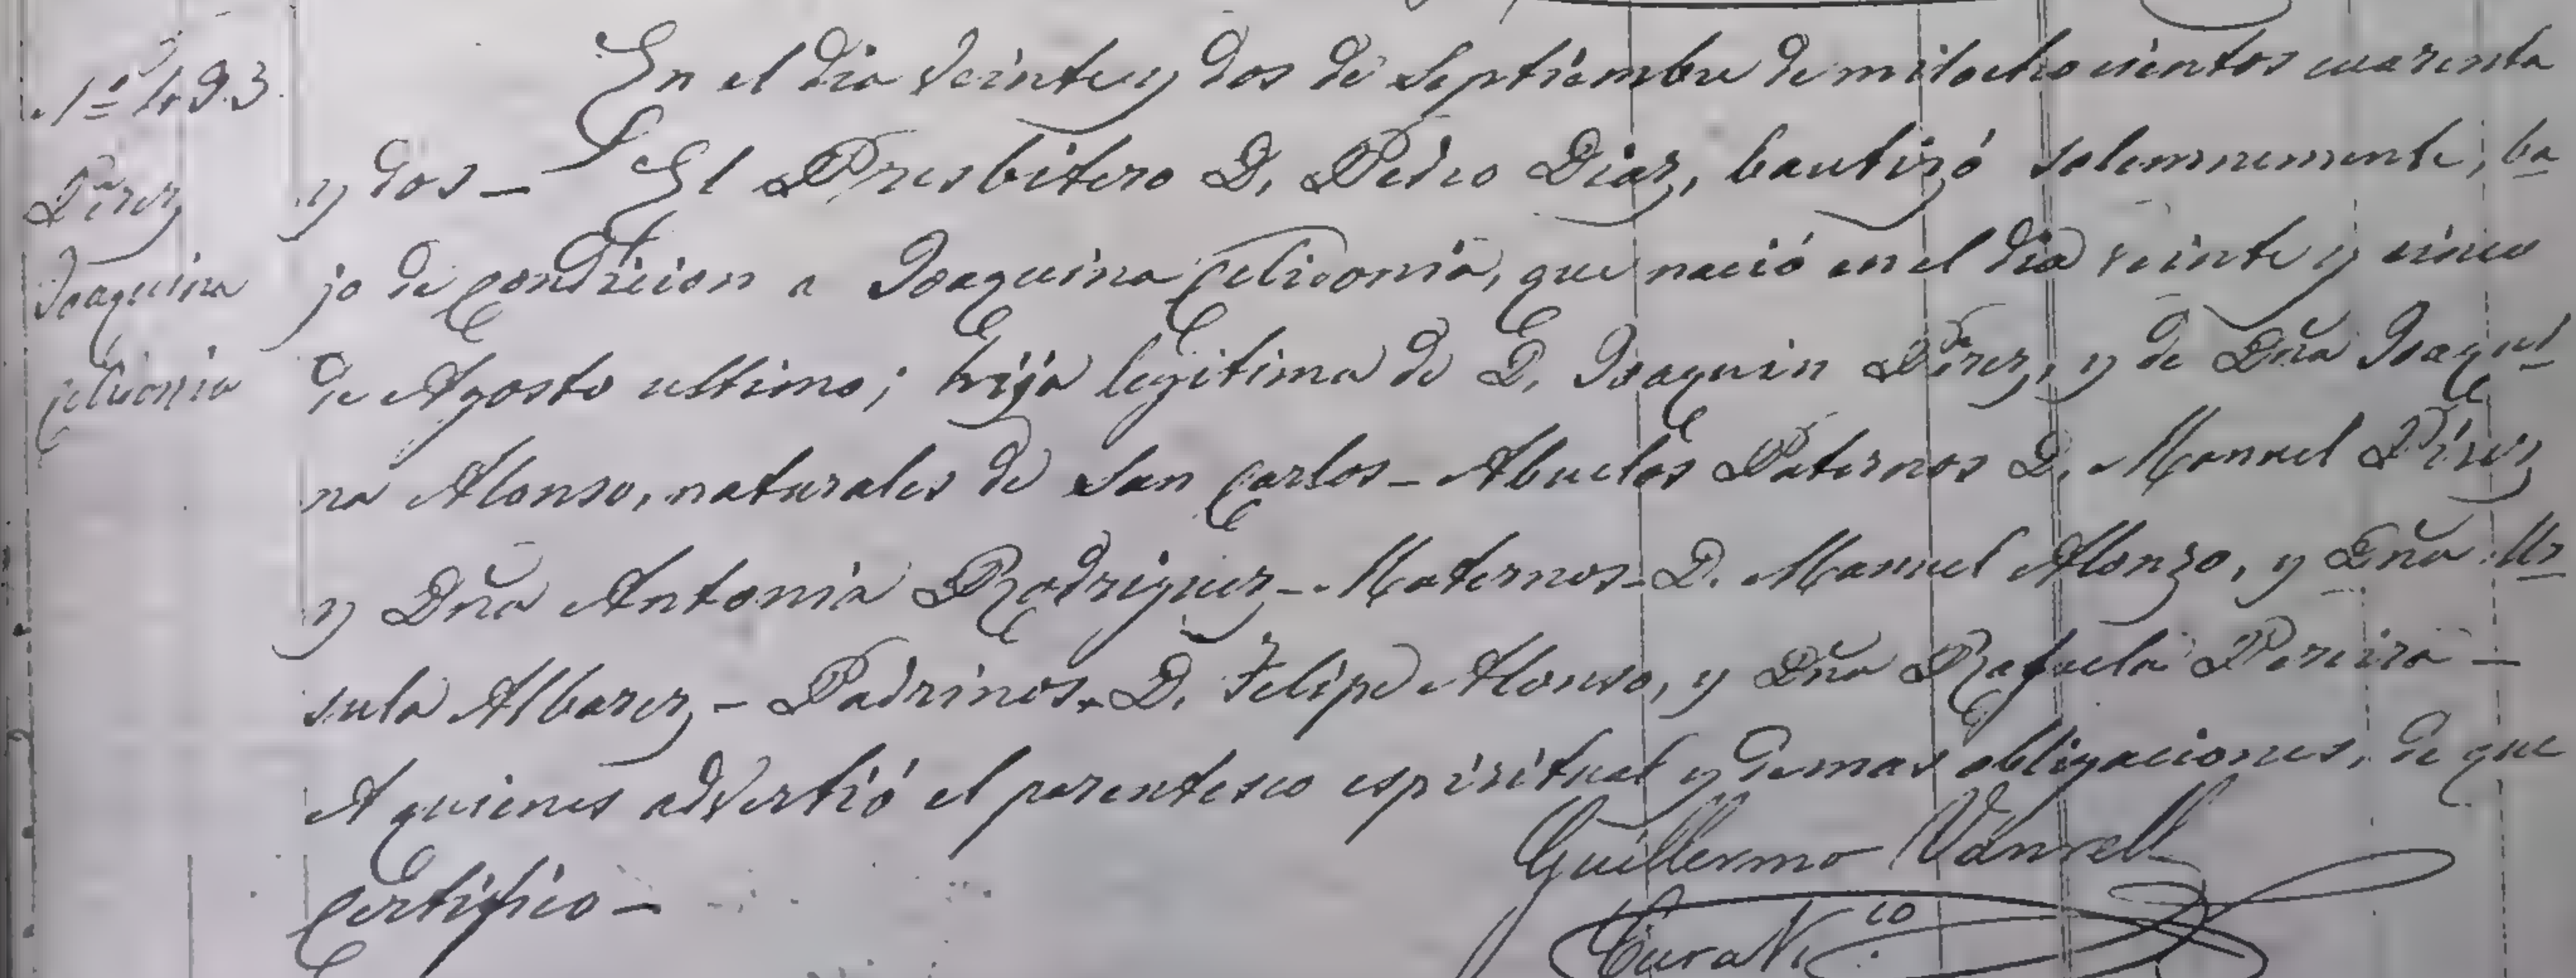 Nº 493.
Perez
Joaquina
Celidonia
En el dia veinte y dos de Septiembre de mil ochocientos cuarenta
y dos _ El Presbitero D. Pedro Diaz, bautizó solemnemente, ba
jo de condicion a Joaquina Celidonia, que nació en el dia veinte y cinco
de Agosto ultimo; hija legitima de D. Joaquin Perez, y de Dña Joaqui
na Alonso, naturales de San Carlos _ Abuelos Paternos D. Manuel Perez
y Dña Antonia Rodriguez _ Maternos _ D. Manuel Alonzo, y Dña Ur
sula Albarez _ Padrinos _ D. Felipe Alonso, y Dña Rafaela Pereira _
A quienes advertió el parentesco espiritual y demas obligaciones, de que
Certifico _
Guillermo Vanrell
Cura Vic.io